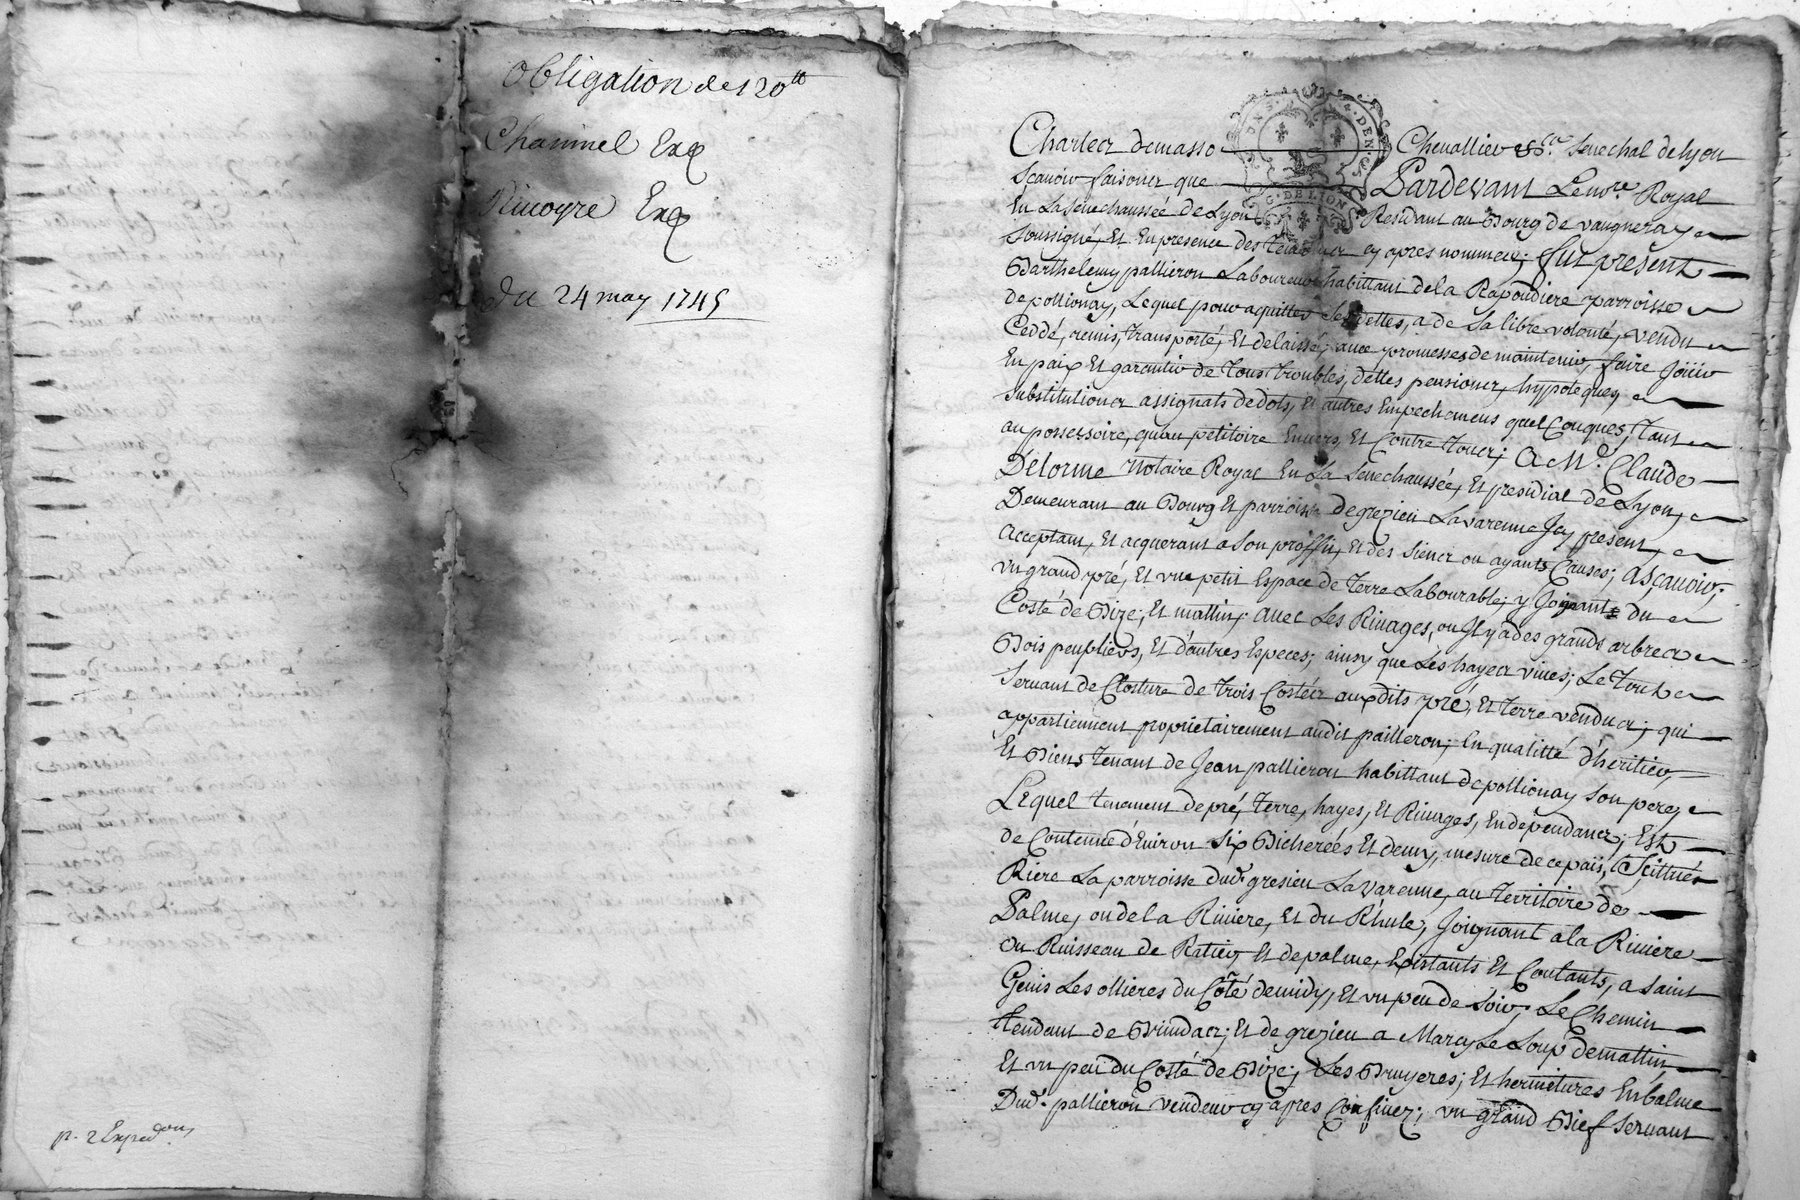 Obligation de 120tt
Chaninel Exp
Riuoyre Exp
du 24 may 1745
p. 2 Expedons
Charles demasso Cheuallier &c.a Senechal de Lyon
Scauoir faisons que Pardevant Le no.re Royal
En La Senechaussée de Lyon Residant au Bourg de vaugneray
Soussigné, Et En presence des temoins cy apres nommes; fut present
Barthelemy pallieron Laboureur habittant de la Rapoudiere parroisse
de pollionay, Lequel pour aquitter Ses dettes, a de Sa libre volonté, vendu
Ceddé, remis, transporté, Et delaissé; auec promesses de maintenir, faire Joüir
En paix Et garantir de tous troubles, dettes pensions, hypoteques,
Substitutions assignats de dots, Et autres Empechemens quelConques, tant
au possessoire, qu'au petitoire Enuers, Et Contre tous; A M.e Claude
Delorme Notaire Royal En La Senechaussée, Et presidial de Lyon,
Demeurant au Bourg Et parroisse de grezieu Lavarenne Jcy present,
Acceptant, Et acquerant a Son proffit, Et des Siens ou ayants Causes; ASçauoir,
vn grand pré, Et vn petit Espace de terre Labourable; y Joignant du
Costé de Bize; Et mattin; Auec Les Riuages, ou Jl y a des grands arbres
Bois peupliers, Et d'autres Especes; ainsy que Les hayes viues; Le tout
Seruant de Closture de trois Costés auxdits pré, Et terre vendus; qui
appartiennent proprietairement audit pailleron; En qualitté d'heritier,
Et Biens tenant de Jean pallieron habittant de pollionay Son pere,
Lequel tenement de pré, terre, hayes, Et Riuages, En dependances; Est
de Contenue d'Enuiron Six Bicherées Et demy, mesure de ce païs, Scittués
Riere La parroisse dud. gresieu Lavarenne, au territoire de
Palme, ou de la Riuiere, Et du Rhule, Joignant a la Riuiere
ou Ruisseau de Ratier, Et de palme, Existants Et Coulants, a Saint
Genis Les ollieres du Côté de midy, Et vn peu de Soir; Le Chemin
tendant de Brindas; Et de grezieu a Marcy Le Loup de mattin
Et vn peu du Costé de Bize; Les Bruyeres; Et hermitures En balme
Dud. pallieron vendeur cy apres Confinés; vn grand Bief Seruant